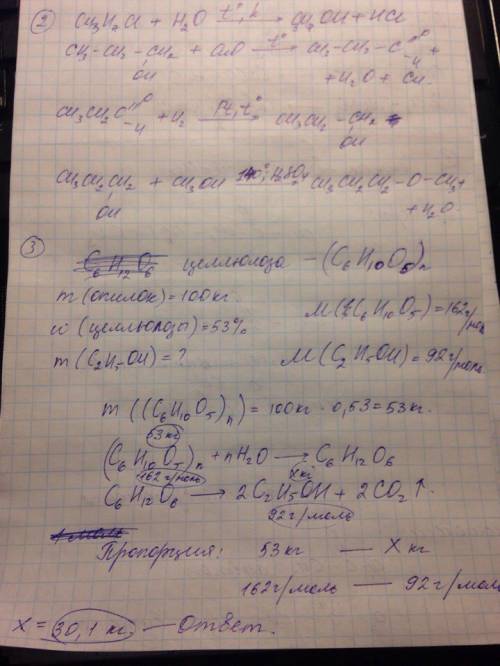 ②
CH₃CH₂Cl + H₂O →(t°, k) C₂H₅OH + HCl
CH₃-CH₂-CH₂ + CuO →(t°) CH₃-CH₂-C=O +
OH -H
+H₂O + Cu.
CH₃CH₂C=O + H₂ →(Pt, t°) CH₃CH₂-CH₂
-H OH
CH₃CH₂CH₂ + CH₃OH →(140°, H₂SO₄) CH₃CH₂CH₂-O-CH₃+
OH +H₂O
③ C₆H₁₂O₆ целлюлоза -(C₆H₁₀O₅)n
m (опилок) = 100кг.
M((C₆H₁₀O₅) = 162г/моль
ω (целлюлозы) = 53%
m(C₂H₅OH) = ?
M(C₂H₅OH) = 92г/моль
m ((C₆H₁₀O₅)n) = 100кг · 0,53 = 53кг.
53кг
(C₆H₁₀O₅)n + nH₂O → C₆H₁₂O₆
162г/моль xкг
C₆H₁₂O₆ → 2C₂H₅OH + 2CO₂↑.
92г/моль
1 моль
Пропорция: 53кг — X кг
162г/моль — 92г/моль
X = 30,1 кг. — Ответ.